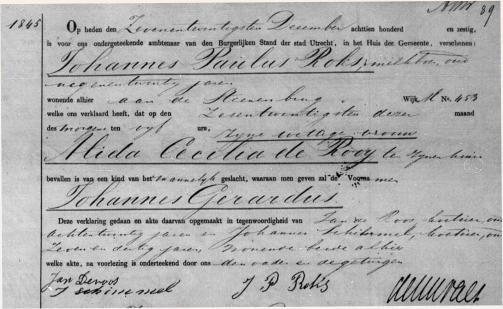 1845
39
Op heden den Zevenentwintigsten December achttien honderd en zestig,
is voor ons ondergeteekende ambtenaar van den Burgerlijken Stand der stad Utrecht, in het Huis der Gemeente, verschenen:
Johannes Paulus Roks, oud
negenentwintig jaren
wonende alhier aan de Steenenbrug Wijk M No. 453
welke ons verklaard heeft, dat op den Zesentwintigsten dezer maand
des morgens ten vijf ure, zijne wettige vrouw
Alida Cecilia de Rooy te zijnen huize
bevallen is van een kind van het mannelijk geslacht, waaraan men geven zal de Voornamen
Johannes Gerardus
Deze verklaring gedaan en akte daarvan opgemaakt in tegenwoordigheid van Jan de Voos, oud
achtentwintig jaren en Johannes oud
Zeven en dertig jaren, Wonende beide alhier
welke akte, na voorlezing is onderteekend door ons den vader en de getuigen
Jan Devoos
J P Roks